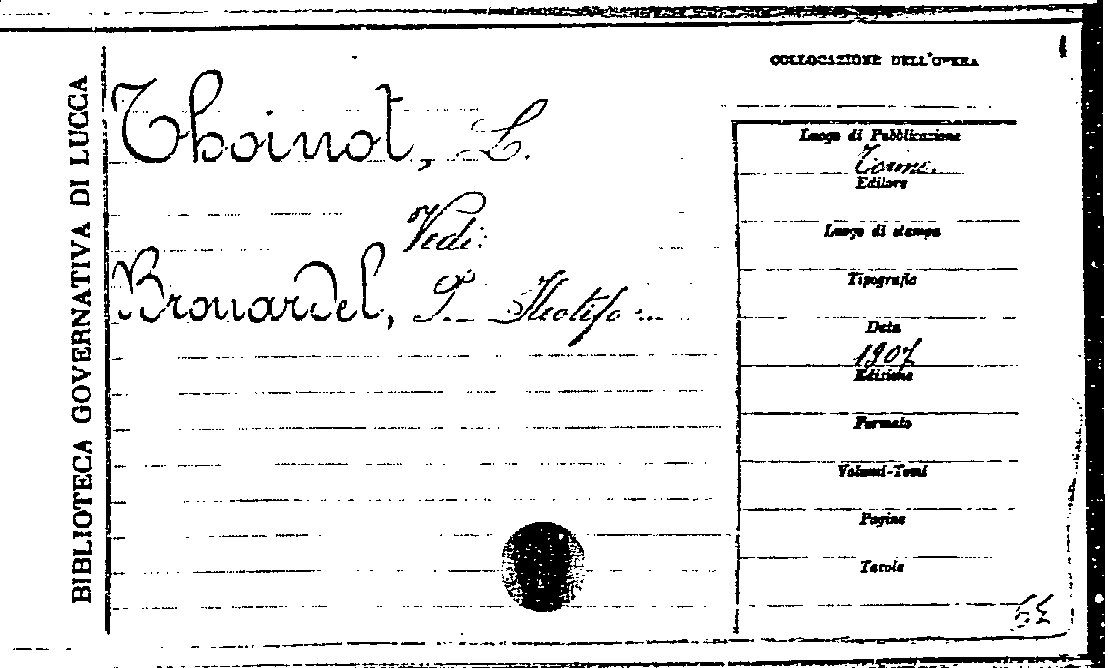 BIBLIOTECA GOVERNATIVA DI LUCCA
Thoinot, L.
Vedi:
Brouardel, P. Ileotifo ...
COLLOCAZIONE DELL'OPERA
Luogo di Pubblicazione
Torino.
Editore
Luogo di stampa
Tipografia
Data
1907
Edizione
Formato
Volumi-Tomi
Pagine
Tavole